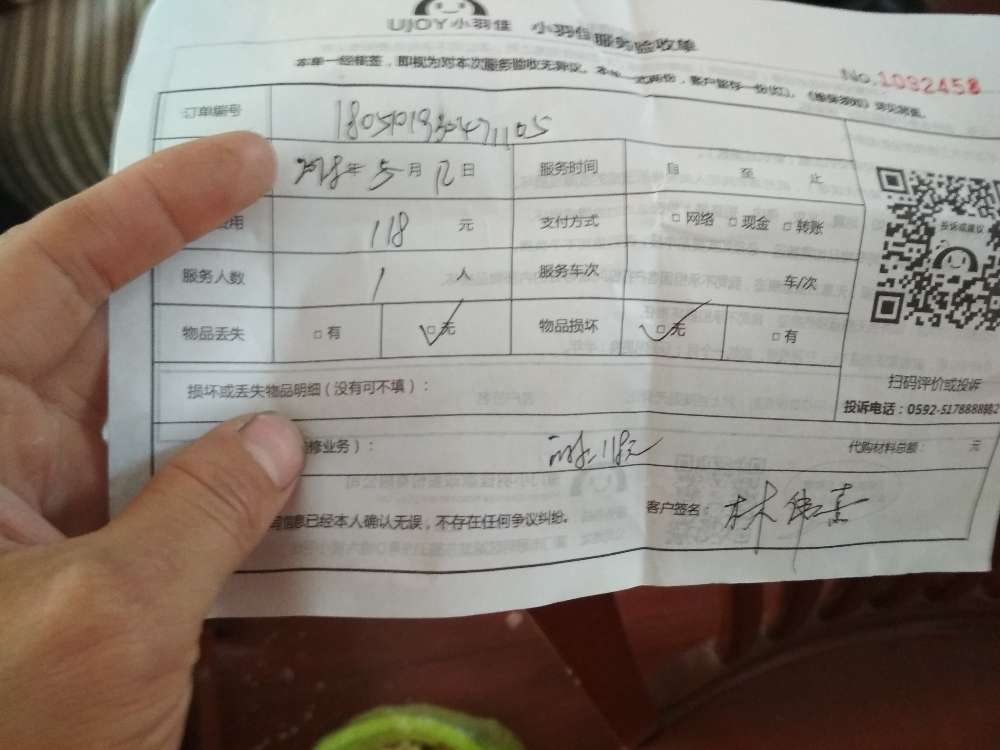 UJOY小羽佳 小羽佳服务验收单
本单一经保签，即视为对本次服务验收无异议。本单一式两份，客户留存一份(红)。
No.1092458
订单编号
2018年5月12日 服务时间 自 至 止
用 118 元 支付方式 □网络 □现金 □转账
投诉或建议
服务人数 1 人 服务车次 车/次
物品丢失 □有 □无 物品损坏 □无 □有
损坏或丢失物品明细（没有可不填）：
扫码评价或投诉
投诉电话：0592-5178888
修业务）： 118元 代购材料总额： 元
信息已经本人确认无误，不存在任何争议纠纷。 客户签名：林伟